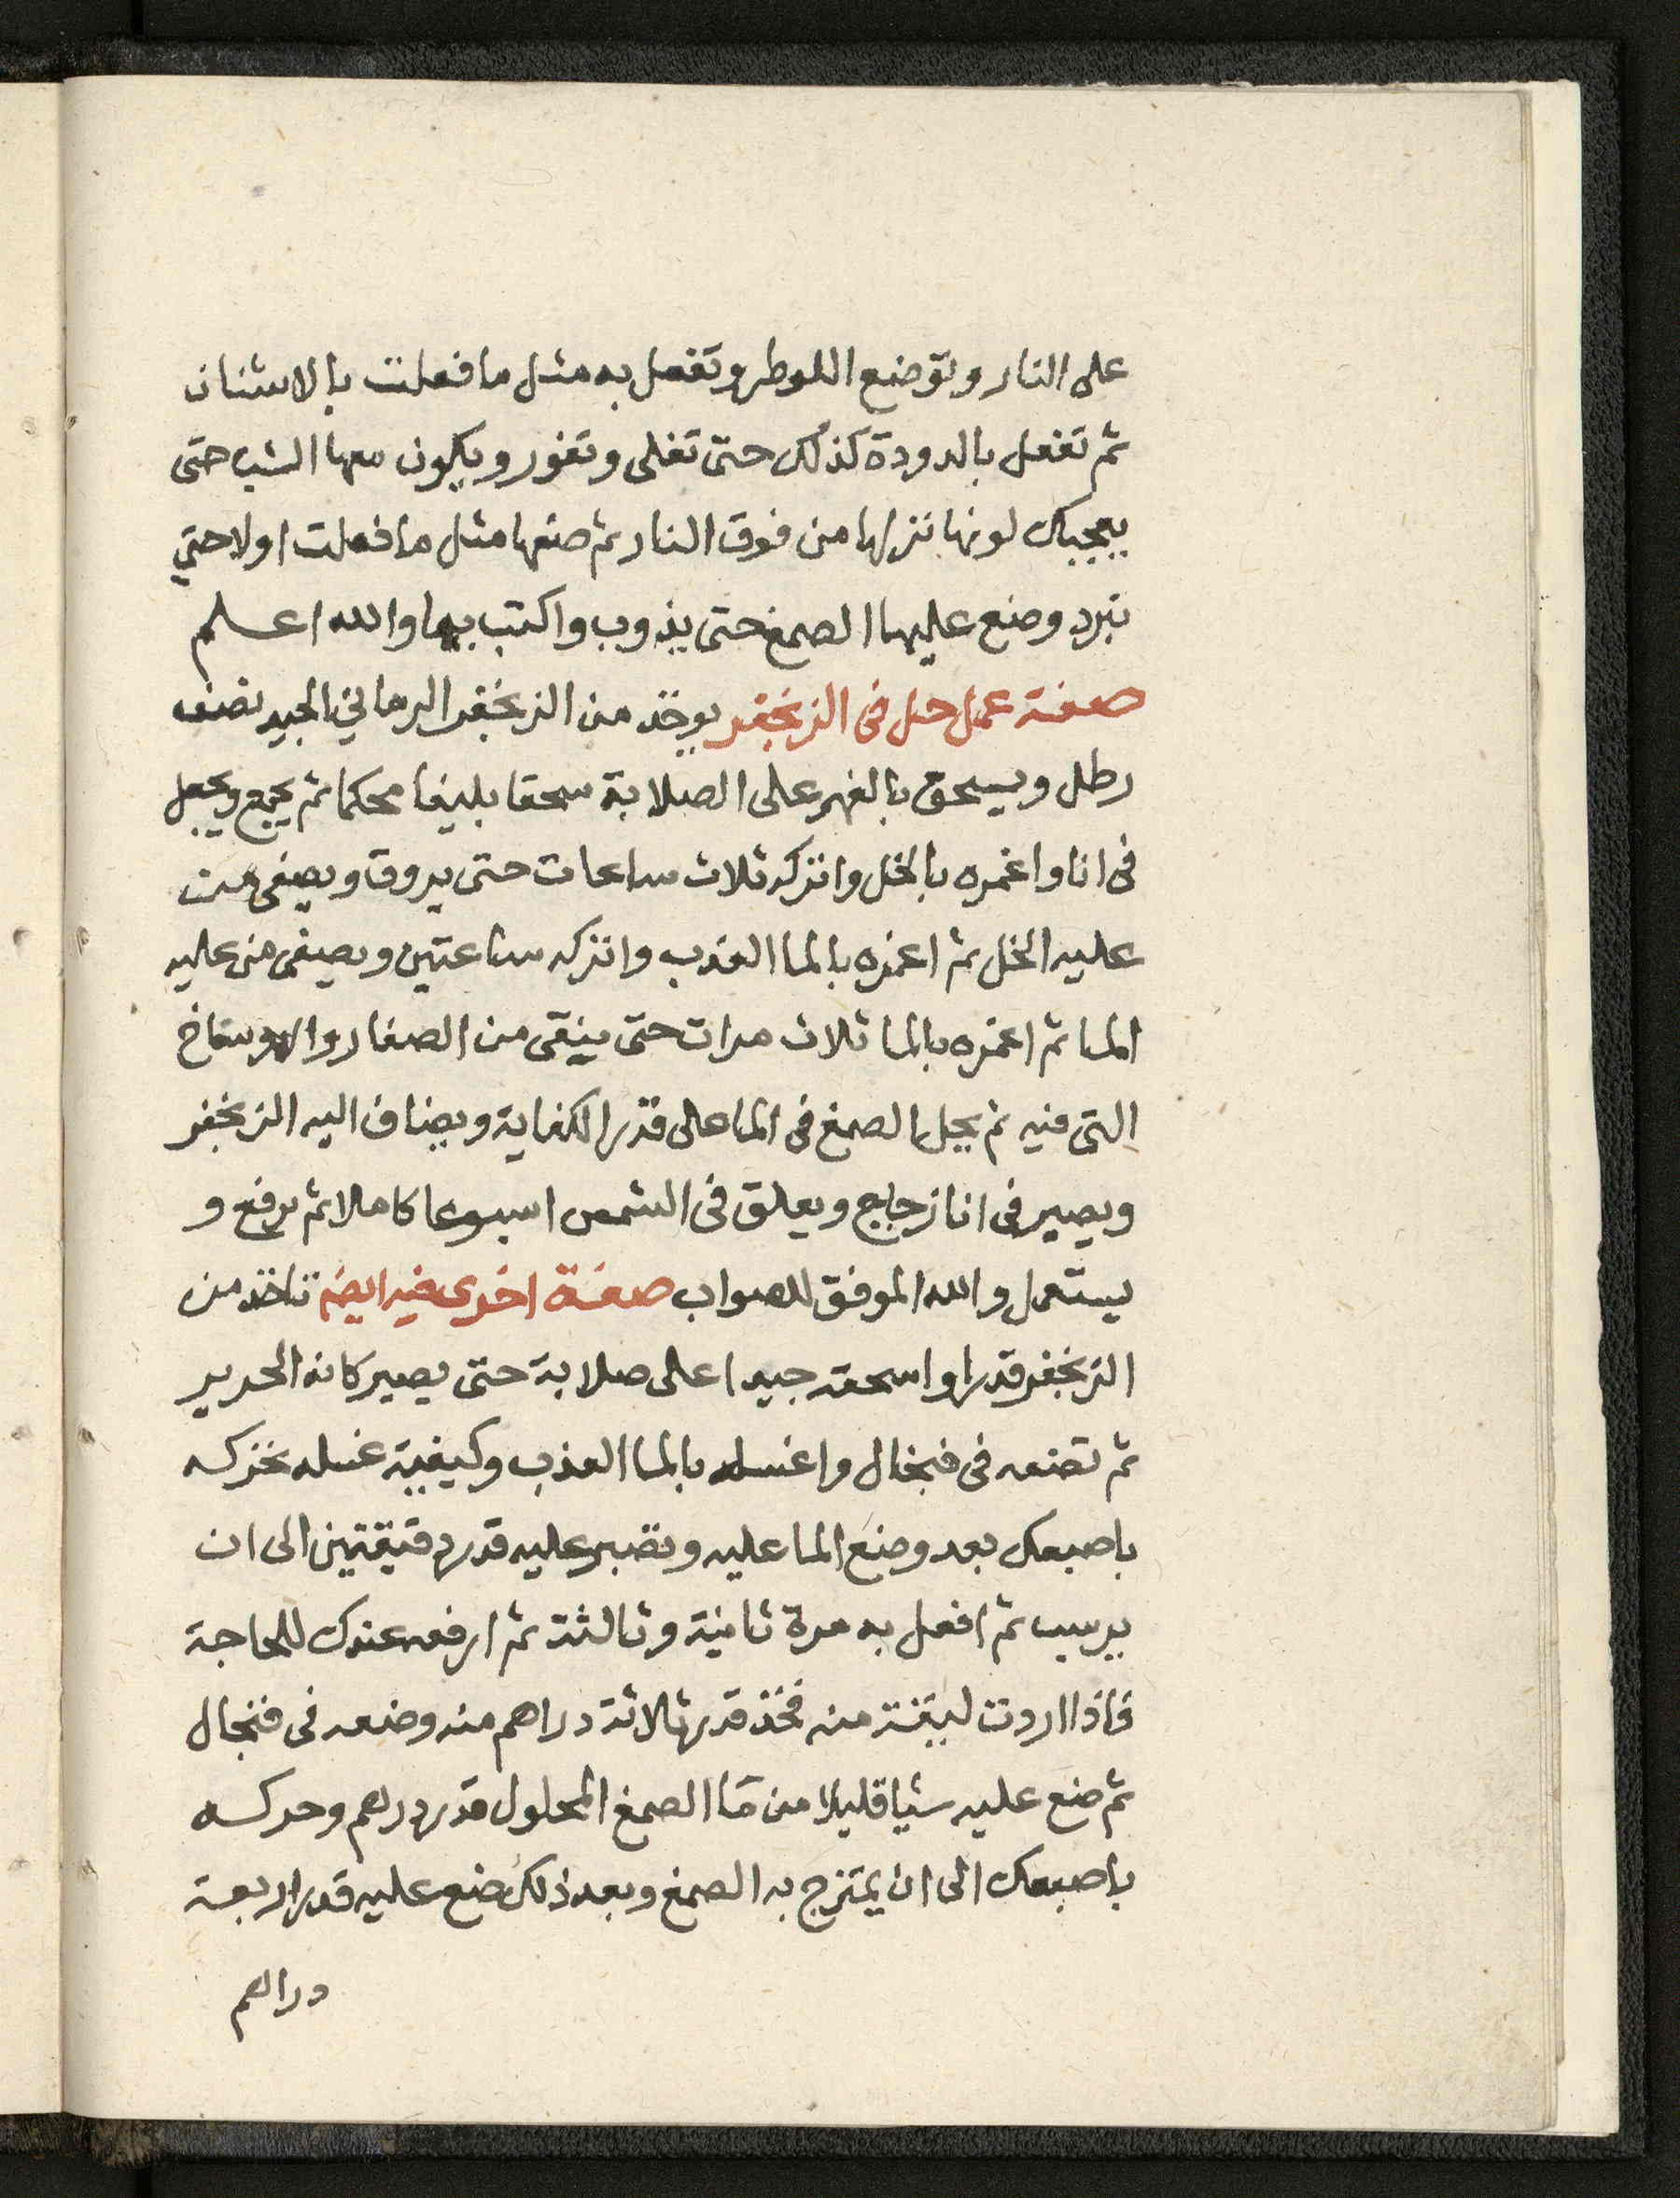 على النار وتوضع اللوطر وتفعل به مثل ما فعلت بالاشنان
ثم تفعل بالدودة كذلك حتى تغلى وتفور ويكون معها الشب حتى
يعجبك لونها نزلها من فوق النار ثم ضعها مثل ما فعلت اولا حتي
تبرد وضع عليها الصمغ حتى يذوب واكتب بها والله اعلم
صفة عمل حل فى الزنجفر يوخذ من الزنجفر الرماني الجيد نصف
رطل ويسحق بالفهر على الصلابة سحقا بليغا محكما ثم يجمع ويجعل
فى انا واغمره بالخل واتركه ثلاث ساعات حتى يروق ويصفى من
عليه الخل ثم اغمره بالما العذب واتركه ساعتين ويصفى من عليه
الما ثم اغمره بالما ثلاث مرات حتى ينقى من الصفار والاوساخ
التى فيه ثم يحل الصمغ فى الما على قدر الكفاية ويضاف اليه الزنجفر
ويصير فى انا زجاج ويعلق فى الشمس اسبوعا كاملا ثم يرفع و
يستعمل والله الموفق للصواب صفة اخرى فيه ايضم تاخذ من
الزنجفر قدرا واسحقه جيدا على صلابة حتى يصير كانه الحرير
ثم تضعه فى فنجال واغسله بالما العذب وكيفية غسله تحركه
باصبعك بعد وضع الما عليه وتصبر عليه قدر دقيقتين الى ان
يرسب ثم افعل به مرة ثانية وثالثة ثم ارفعه عندك للحاجة
فاذا اردت ليقة منه فخذ قدر ثلاثة دراهم منه وضعه فى فنجال
ثم ضع عليه شيا قليلا من ما الصمغ المحلول قدر درهم وحركه
باصبعك الى ان يمتزج به الصمغ وبعد ذلك ضع عليه قدر اربعة
دراهم